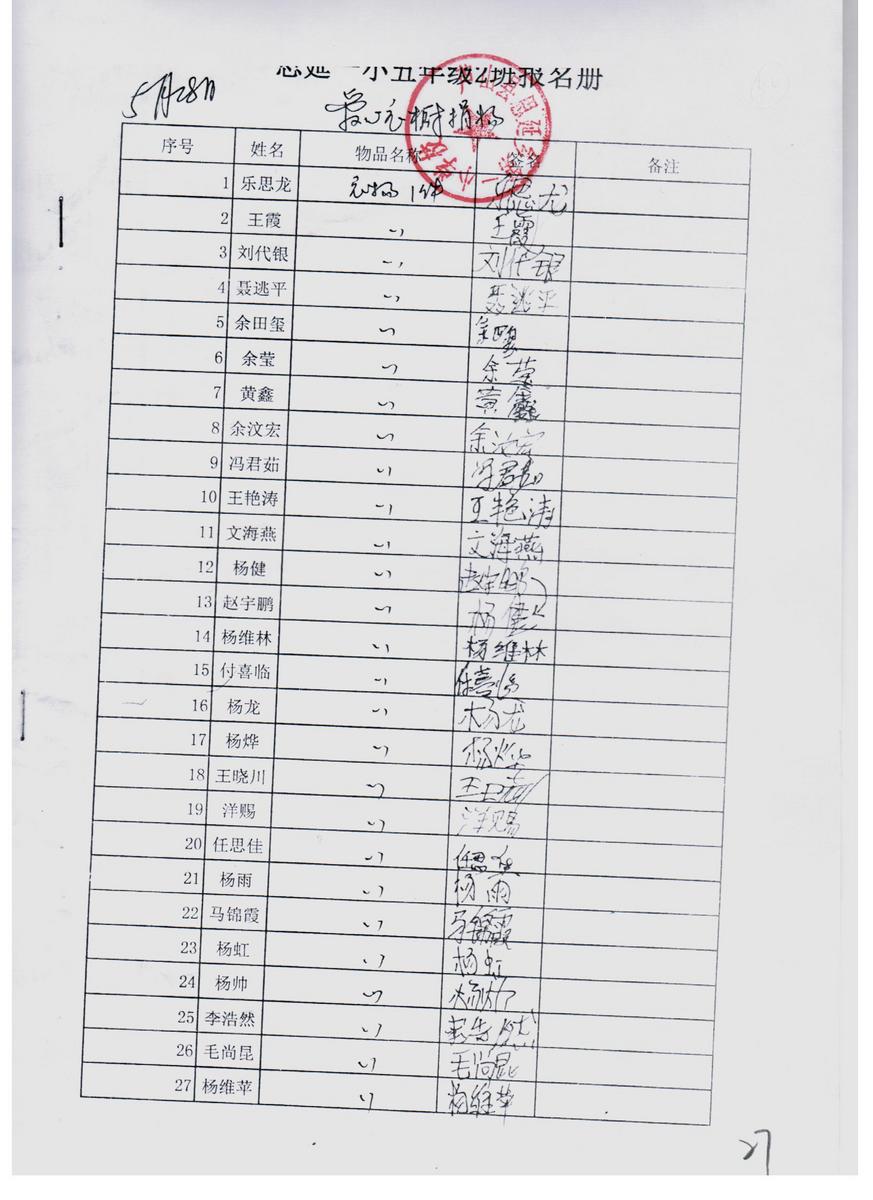 思延一小五年级2班报名册
5月28日
爱心衣橱捐物
序号 姓名 物品名称 签名 备注
1 乐思龙 衣物1件 乐思龙
2 王霞 〃 王霞
3 刘代银 〃 刘代银
4 聂逃平 〃 聂逃平
5 余田玺 〃 余田玺
6 余莹 〃 余莹
7 黄鑫 〃 黄鑫
8 余汶宏 〃 余汶宏
9 冯君茹 〃 冯君茹
10 王艳涛 〃 王艳涛
11 文海燕 〃 文海燕
12 杨健 〃 赵宇鹏
13 赵宇鹏 〃 杨健
14 杨维林 〃 杨维林
15 付喜临 〃 付喜临
16 杨龙 〃 杨龙
17 杨烨 〃 杨烨
18 王晓川 〃
19 洋赐 〃 洋赐
20 任思佳 〃 任思佳
21 杨雨 〃 杨雨
22 马锦霞 〃 马锦霞
23 杨虹 〃 杨虹
24 杨帅 〃 杨帅
25 李浩然 〃 李浩然
26 毛尚昆 〃 毛尚昆
27 杨维苹 〃 杨维苹
27